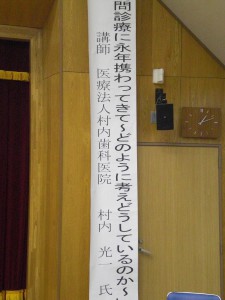 問診療に永年携わってきて～どのように考えどうしているのか～
講師 医療法人村内歯科医院 村内 光一 氏